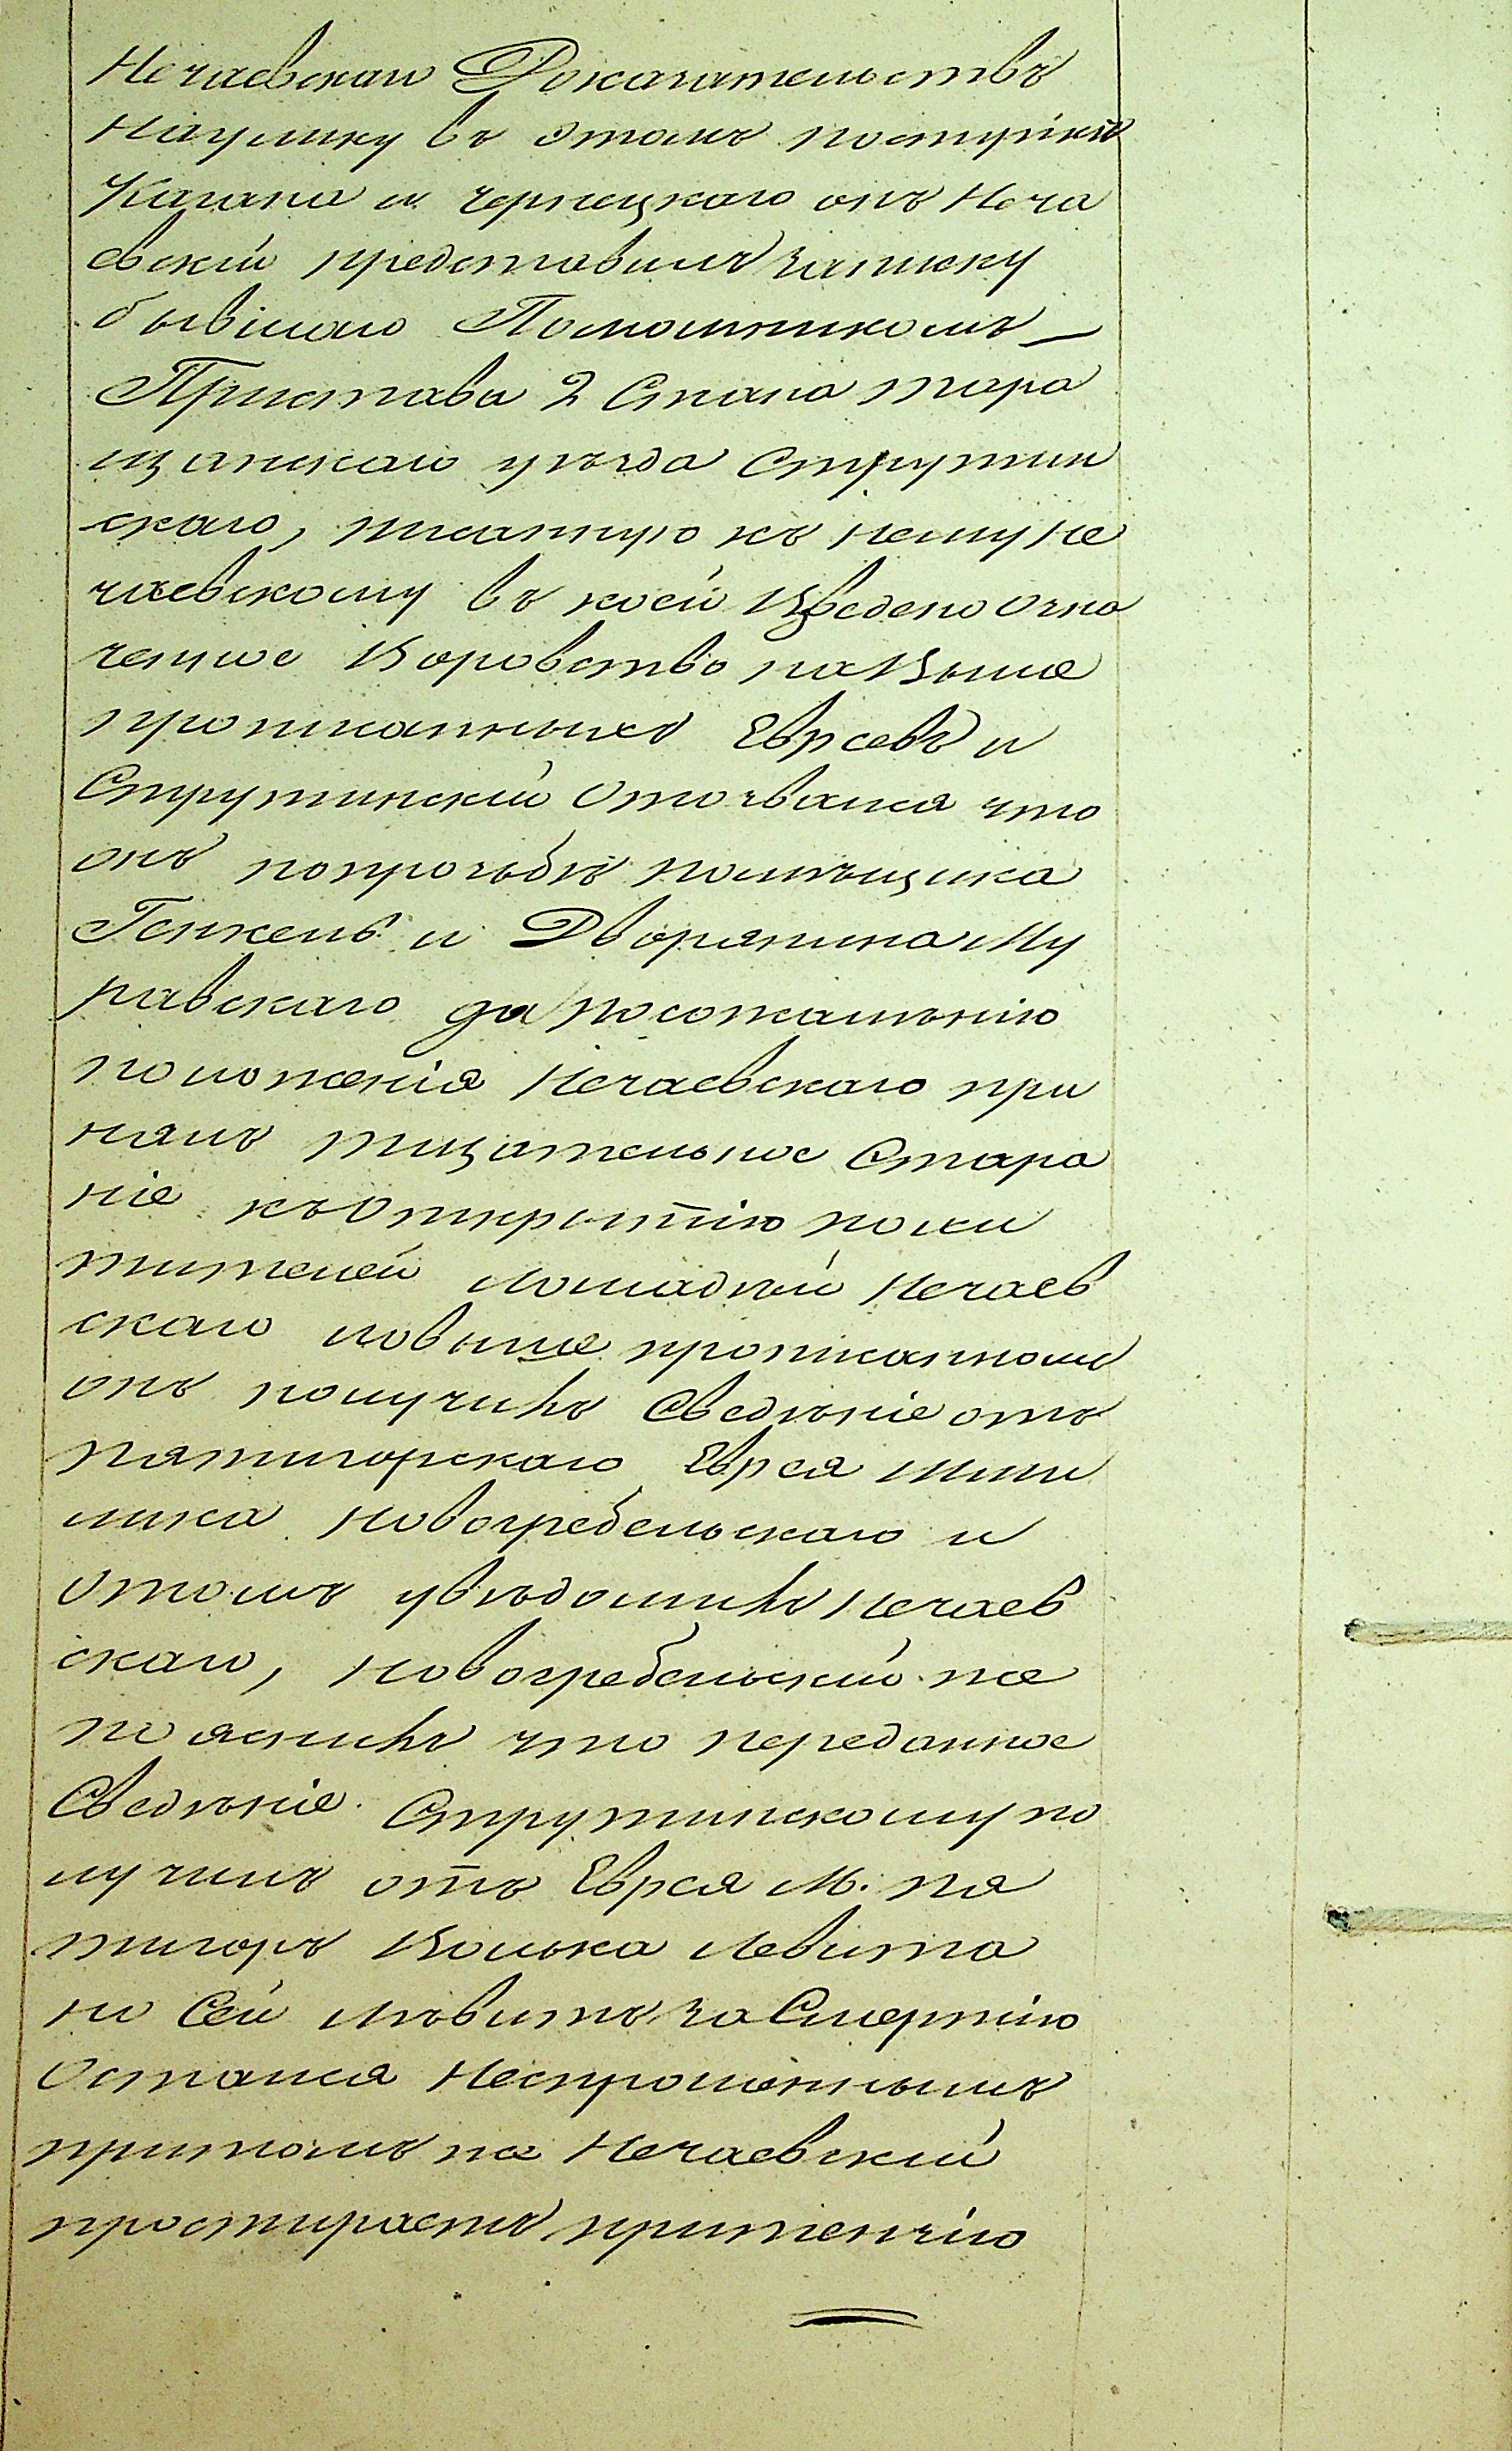 Нечаевскаго Доказательствъ
Наулику въ этомъ поступке
Кагана и чернецкаго онъ Неча
евскій представилъ записку
бывшаго Помошникомъ
Пристава 2 Стана тара
щанскаго уѣзда Струтин
скаго, писанную къ нему Не
чаевскому въ коей Взведено озна
ченное Воровство на Выше
прописанныхъ Евреевъ и
Струтинскій Отозвался что
онъ попрозьбѣ помѣщика
Генкель и Дворянина Му
равскаго да посожалѣнію
положенія Нечаевскаго при
нялъ тщательное Стара
ніе къ Открытію похи
тителей Лошадѣй Нечаев
скаго повыше прописанному
онъ получилъ Сведѣніе отъ
пятигорскаго Еврея Шми
лика Новогребельскаго и
Отомъ увѣдомилъ Нечаев
скаго, Новогребельскій же
пояснилъ что переданное
Сведѣніе Струтинскому по
лучилъ отъ Еврея М. пя
тигоръ Волька Левита
но Сей Лѣвитъ за Смертію
Остался Неспрошеннымъ
притомъ же Нечаевскій
простираетъ притензію